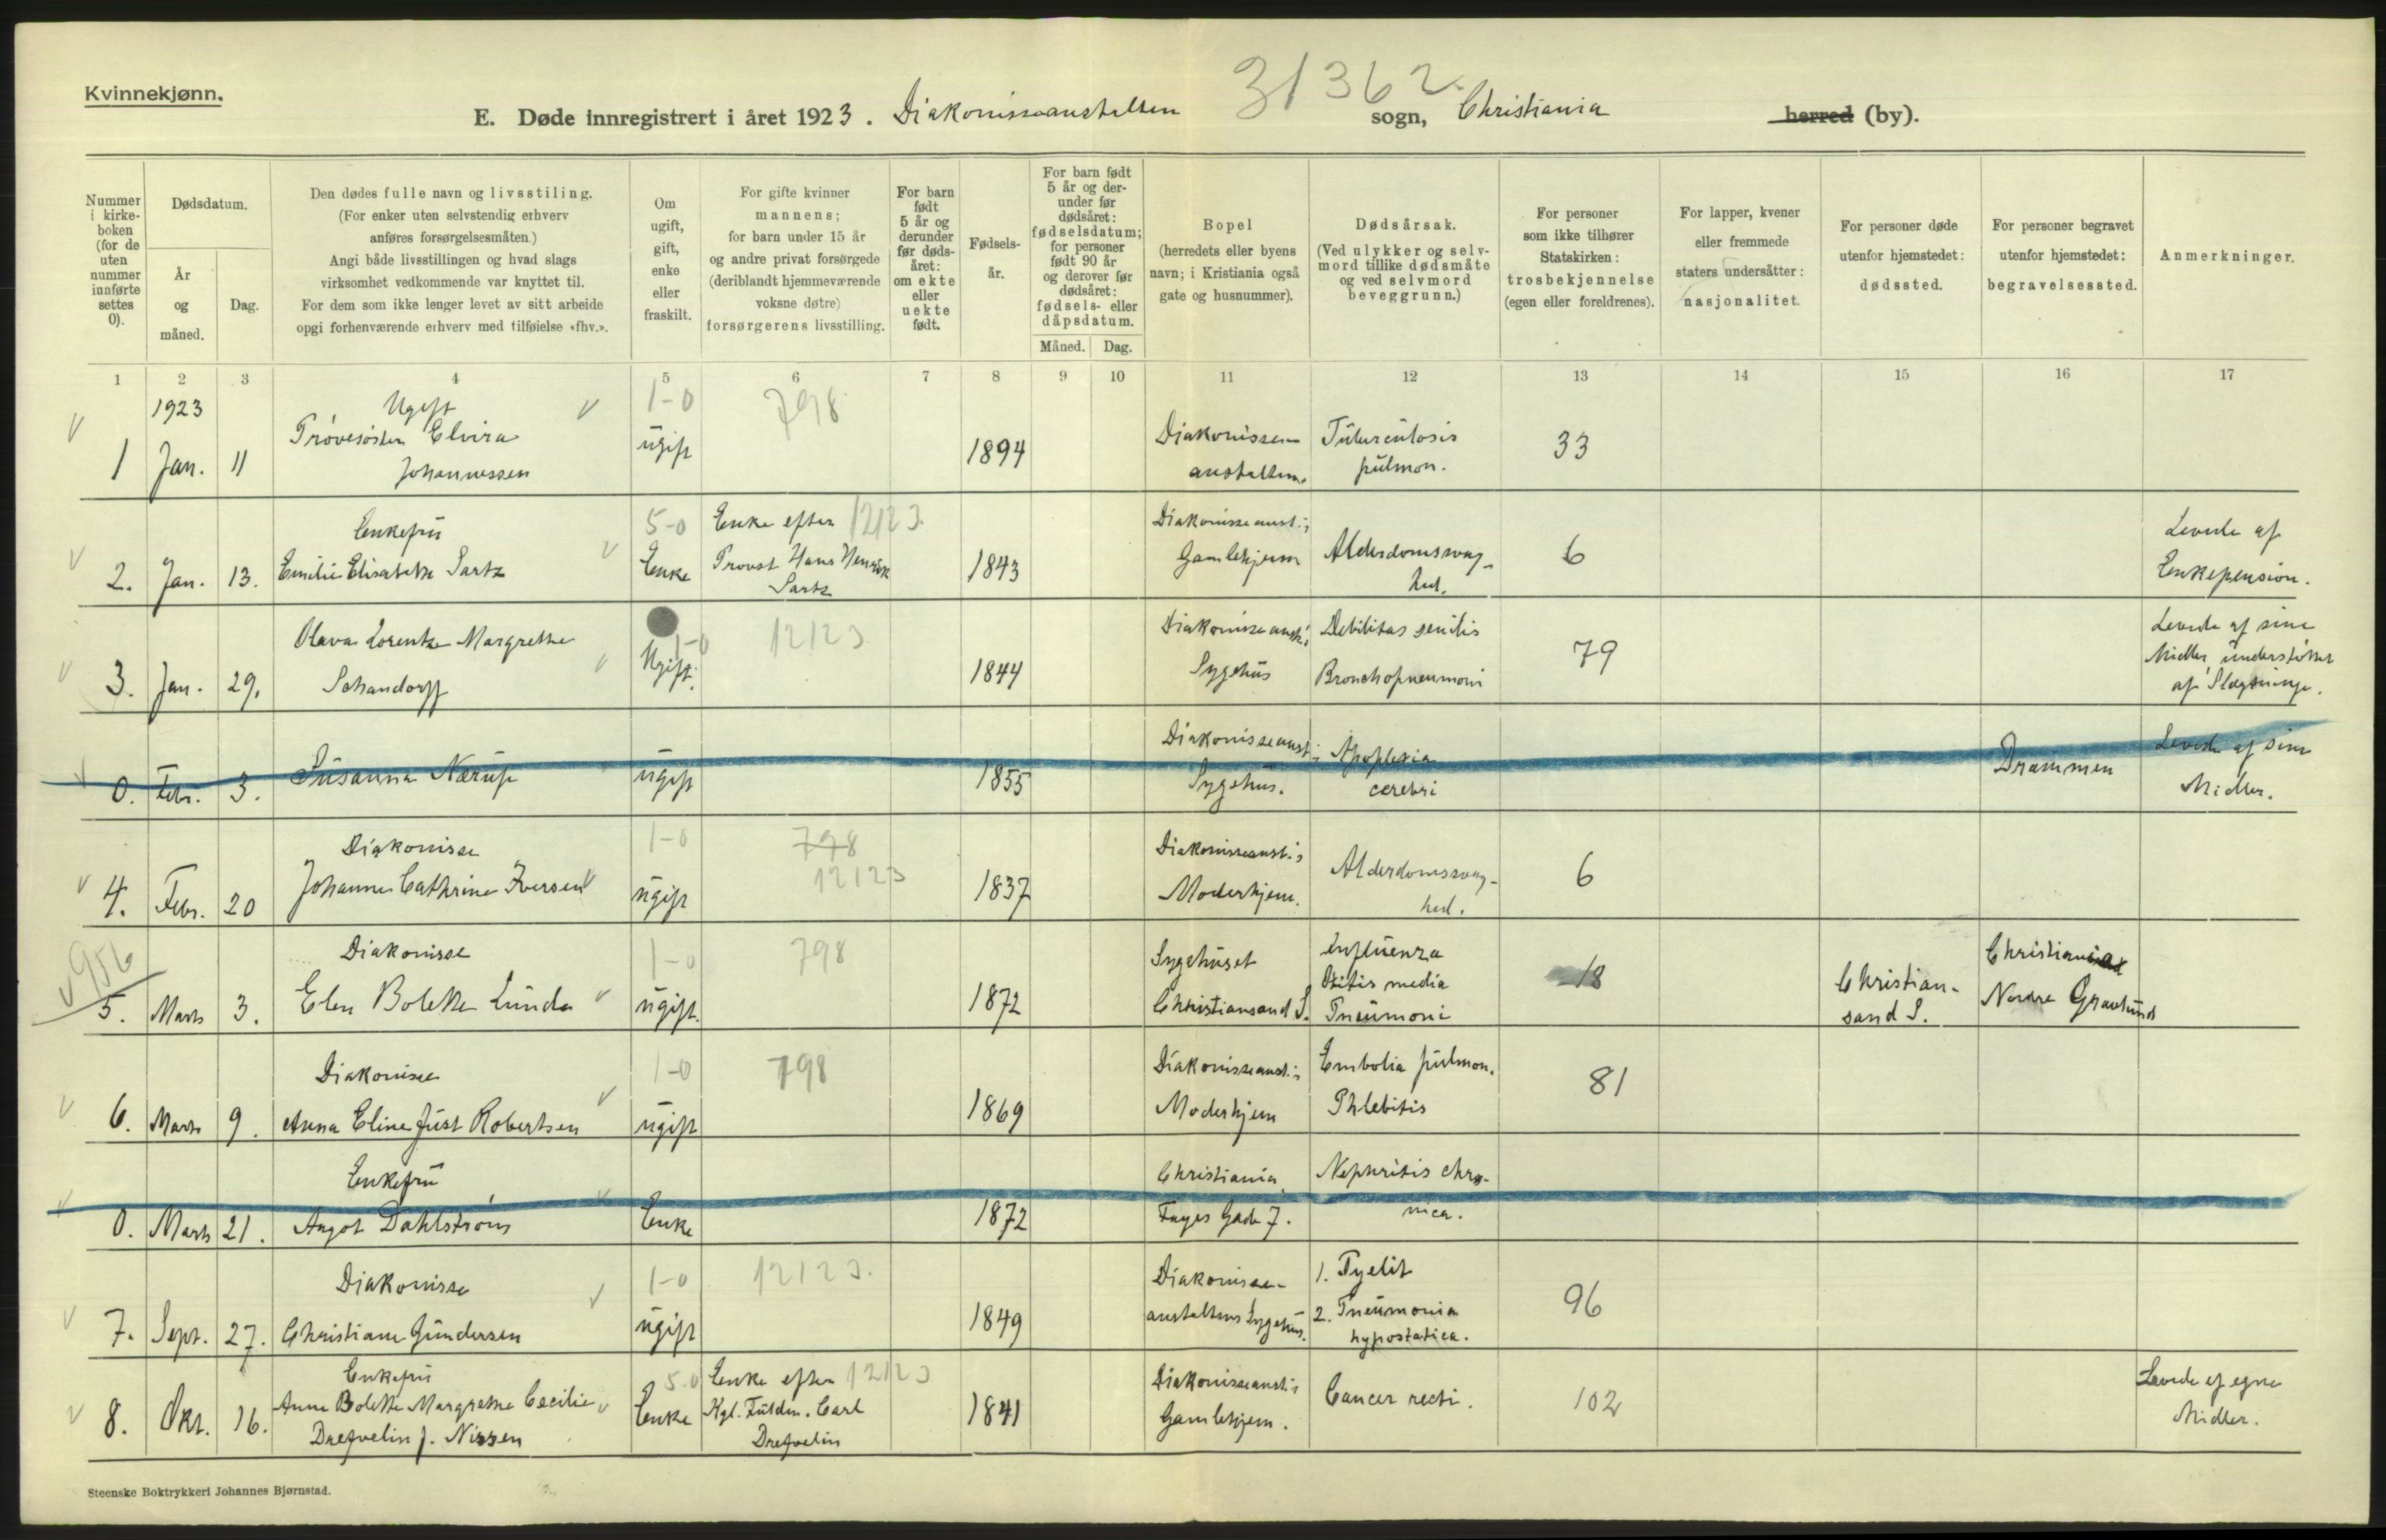 Kvinnekjønn.
31362.
E. Døde innregistrert i året 1923. Diakonisseanstalten sogn, Christiania herred (by).
Nummer i kirkeboken (for de uten nummer innførte settes 0).
Dødsdatum.
År og måned.
Dag.
Den dødes fulle navn og livsstilling.
(For enker uten selvstendig erhverv anføres forsørgelsesmåten.)
Angi både livsstillingen og hvad slags virksomhet vedkommende var knyttet til.
For dem som ikke lenger levet av sitt arbeide opgi forhenværende erhverv med tilføielse «fhv.».
Om ugift, gift, enke eller fraskilt.
For gifte kvinner mannens; for barn under 15 år og andre privat forsørgede (deriblandt hjemmeværende voksne døtre) forsørgerens livsstilling.
For barn født 5 år og derunder før dødsåret: om ekte eller uekte født.
Fødselsår.
For barn født 5 år og derunder før dødsåret: fødselsdatum; for personer født 90 år og derover før dødsåret: fødsels- eller dåpsdatum.
Måned. Dag.
Bopel (herredets eller byens navn; i Kristiania også gate og husnummer).
Dødsårsak. (Ved ulykker og selvmord tillike dødsmåte og ved selvmord beveggrunn.)
For personer som ikke tilhører Statskirken: trosbekjennelse (egen eller foreldrenes).
For lapper, kvener eller fremmede staters undersåtter: nasjonalitet.
For personer døde utenfor hjemstedet: dødssted.
For personer begravet utenfor hjemstedet: begravelsessted.
Anmerkninger.
1 2 3 4 5 6 7 8 9 10 11 12 13 14 15 16 17
1923 Ugift 1-0 798
1 Jan. 11 Prøvesøster Elvira Johannessen ugift 1894 Diakonisseanstalten. Tuberculosis pulmon. 33
Enkefru 5-0 Enke efter 12123.
2. Jan. 13. Emilie Elisabeth Sartz Enke Provst Hans Henrik Sartz 1843 Diakonisseanst.s Gamlehjem Alderdomssvaghed. 6 Levede af Enkepension.
3. Jan. 29. Olava Lorentze Margrethe Schandorff 1-0 Ugift. 12123 1844 Diakonisseanst.s Sygehus Debilitas senilis Bronchopneumoni 79 Levede af sine Midler, understøttet af Slægtninge.
0. Febr. 3. Susanna Nærup ugift 1855 Diakonisseanst.s Sygehus. Apoplexia cerebri Drammen Levede af sine Midler.
Diakonisse 1-0 798 12123
4. Febr. 20 Johanne Cathrine Iversen ugift 1837 Diakonisseanst.s Moderhjem. Alderdomssvaghed. 6
956 Diakonisse 1-0 798
5. Marts 3. Elen Bolette Lunde ugift. 1872 Sygehuset Christiansand S. Influenza Otitis media Pneumoni 18 Christiansand S. Christiania Nordre Gravlund
Diakonisse 1-0 798
6. Marts 9. Anna Eline Just Robertsen ugift 1869 Diakonisseanst.s Moderhjem Embolia pulmon. Phlebitis 81
Enkefru
0. Marts 21. Angot Dahlstrøm Enke 1872 Christiania, Fayes Gade 7. Nephritis chronica.
Diakonisse 1-0 12123.
7. Sept. 27. Christiane Gundersen ugift 1849 Diakonisseanstaltens Sygehus. 1. Pyelit 2. Pneumonia hypostatica. 96
Enkefru 5-0 Enke efter 12123
8. Okt. 16. Anne Bolette Margrethe Cecilie Drefvelin f. Nissen Enke Kgl. Fuldm. Carl Drefvelin 1841 Diakonisseanst.s Gamlehjem. Cancer recti. 102 Levede af egne Midler.
Steenske Boktrykkeri Johannes Bjørnstad.